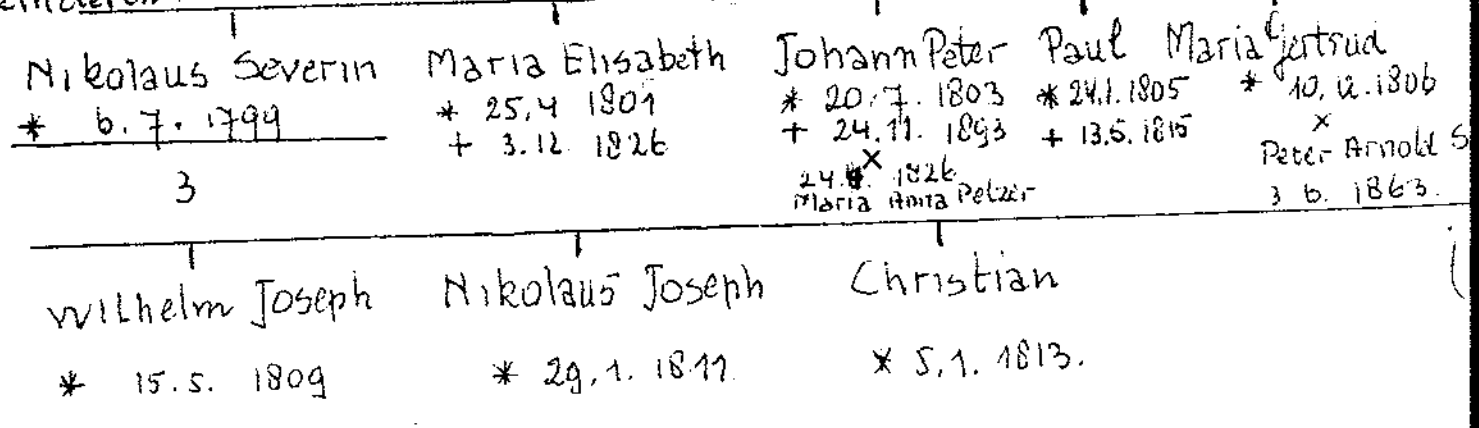 Nikolaus Severin
* 6.7.1799
3
Maria Elisabeth
* 25.4 1801
+ 3.12. 1826
Johann Peter
* 20.7.1803
+ 24.11.1893
x
1826
Maria Anna Pelzer
Paul
* 24.1.1805
+ 13.5.1815
Maria Gertrud
* 10.12.1806
x
Peter Arnold S
3 6. 1863.
Wilhelm Joseph
* 15.5. 1809
Nikolaus Joseph
* 29.1.1811
Christian
* 5.1. 1813.